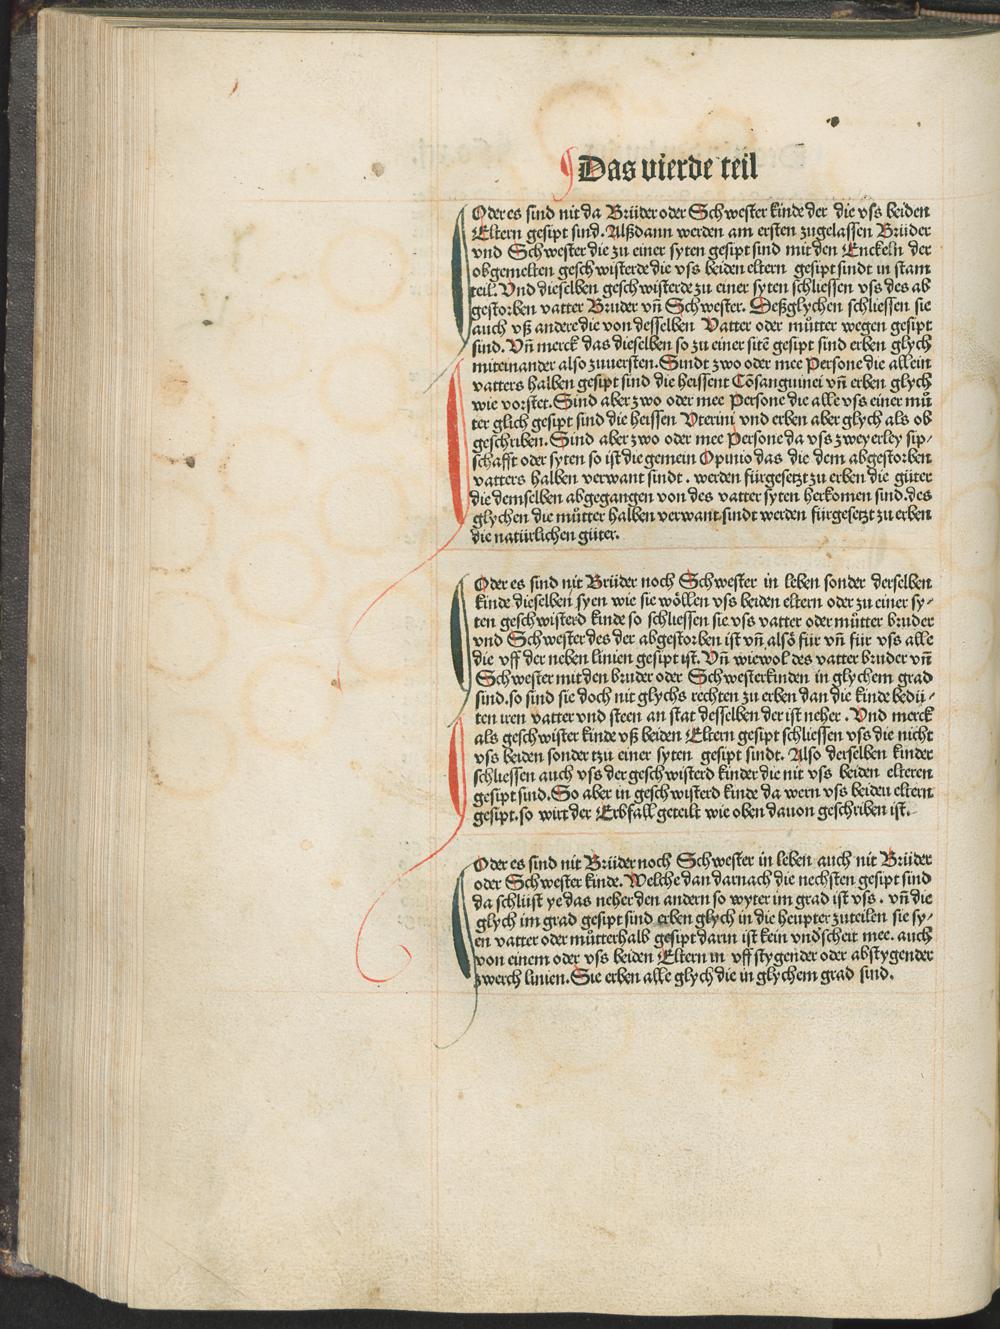 Das vierde teil
Oder es sind nit da Brüder oder Schwester kinde der die vſs beiden
Eltern gesipt sind. Alßdann werden am ersten zugelassen Brüder
vnd Schwester die zu einer syten gesipt sind mit den Enckeln der
obgemelten geschwisterde die vſs beiden eltern gesipt sindt in stam
teil. Vnd dieselben geschwisterde zu einer syten schliessen vſs des ab
gestorben vatter Bruder vñ Schwester. Deßglychen schliessen sie
auch vß andere die von desselben Vatter oder můtter wegen gesipt
sind. Vñ merck das dieselben so zu einer sitẽ gesipt sind erben glych
miteinander also zuuersten. Sindt zwo oder mee Persone die allein
vatters halben gesipt sind die heissent Cõsanguinei vñ erben glych
wie vorstet. Sind aber zwo oder mee Persone die alle vſs einer mů
ter glich gesipt sind die heissen Vterini vnd erben aber glych als ob
geschriben. Sind aber zwo oder mee Persone da vſs zweyerley sip⸗
schafft oder syten so ist die gemein Opinio das die dem abgestorben
vatters halben verwant sindt . werden fürgesetzt zu erben die güter
die demselben abgegangen von des vatter syten herkomen sind. des
glychen die můtter halben verwant sindt werden fürgesetzt zu erben
die natürlichen güter.
Oder es sind nit Brüder noch Schwester in leben sonder derselben
kinde dieselben syen wie sie wöllen vſs beiden eltern oder zu einer sy⸗
ten geschwisterd kinde so schliessen sie vſs vatter oder můtter bruder
vnd Schwester des der abgestorben ist vñ alsõ für vñ für vſs alle
die vff der neben linien gesipt ist. Vñ wiewol des vatter bruder vñ
Schwester mit den bruder oder Schwesterkinden in glychem grad
sind. so sind sie doch nit glychs rechten zu erben dan die kinde bedü⸗
ten iren vatter vnd steen an stat desselben der ist neher . Vnd merck
als geschwister kinde vß beiden Eltern gesipt schliessen vſs die nicht
vſs beiden sonder tzu einer syten gesipt sindt. Also derselben kinder
schliessen auch vſs der geschwisterd kinder die nit vſs beiden elteren
gesipt sind. So aber in geschwisterd kinde da wern vſs beiden eltern
gesipt. so wirt der Erbfall geteilt wie oben dauon geschriben ist.
Oder es sind nit Brüder noch Schwester in leben auch nit Brüder
oder Schwester kinde. Welche dan darnach die nechsten gesipt sind
da schlüst ye das neher den andern so wyter im grad ist vſs . vñ die
glych im grad gesipt sind erben glych in die heupter zuteilen sie sy⸗
en vatter oder můtterhalb gesipt darin ist kein vnd'scheit mee. auch
von einem oder vſs beiden Eltern in vff stygender oder abstygender
zwerch linien. Sie erben alle glych die in glychem grad sind.